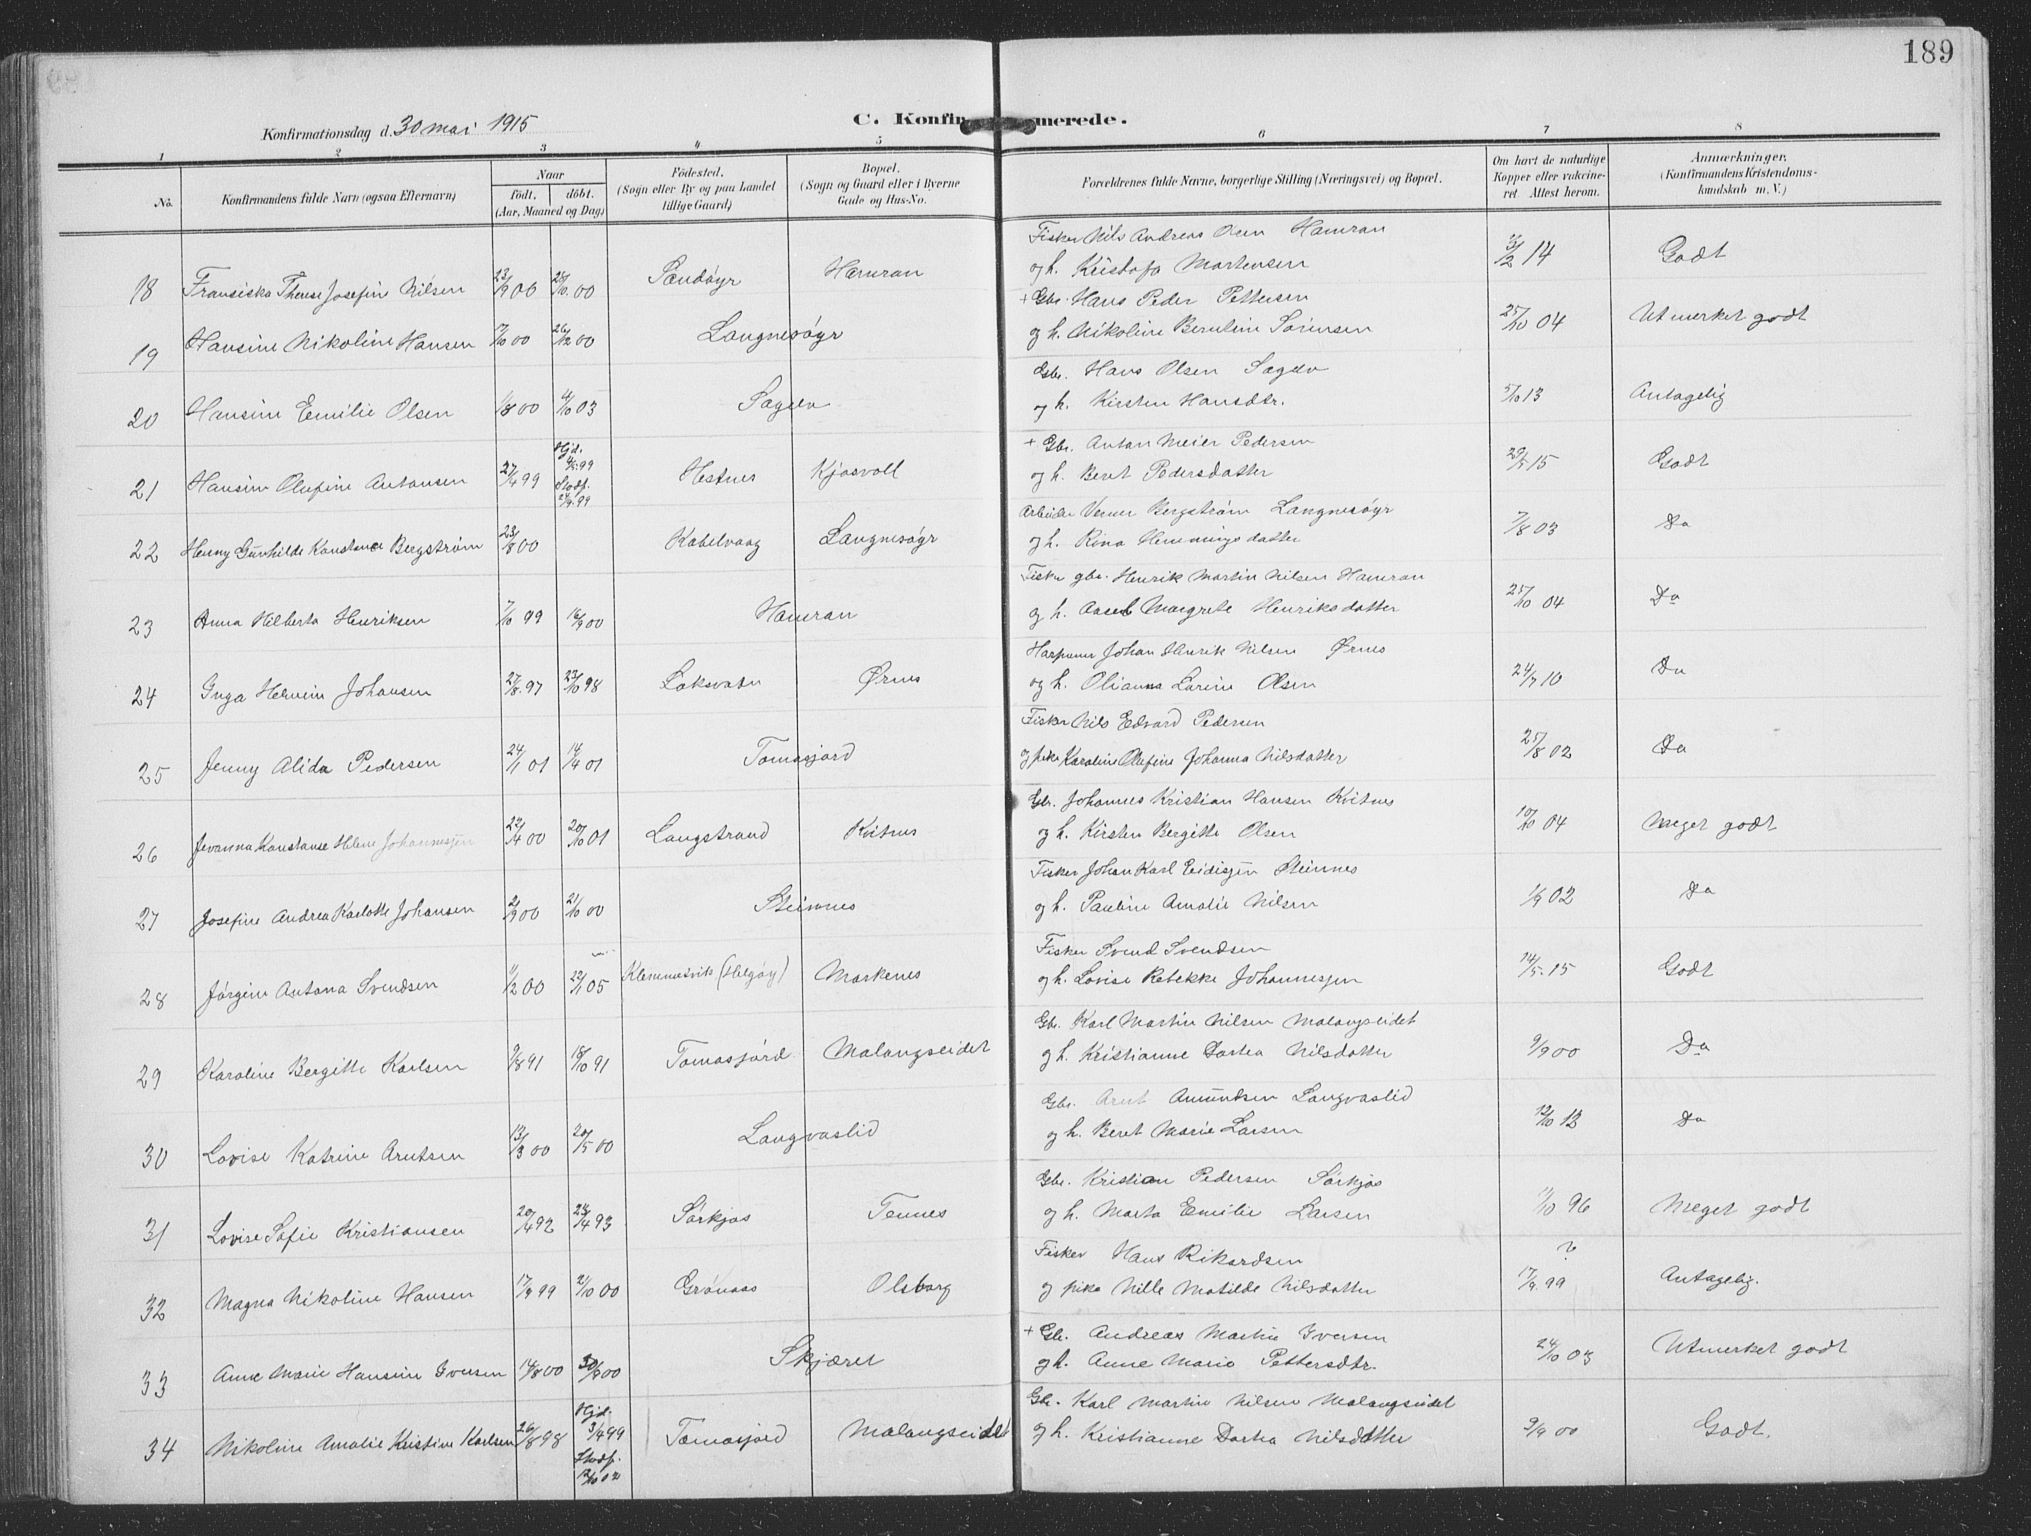 189
Konfirmationsdag d. 30 mai 1915
C. Konfirmerede.
1 2 3 4 5 6 7 8
No.
Konfirmandens fulde Navn (ogsaa Efternavn)
Naar
födt. döbt.
(Aar, Maaned og Dag)
Födested.
(Sogn eller By og paa Landet
tillige Gaard)
Bopæl.
(Sogn og Gaard eller i Byerne
Gade og Hus-No.
Forældrenes fulde Navne, borgerlige Stilling (Næringsvei) og Bopæl.
Om havt de naturlige
Kopper eller vaccine-
ret Attest herom.
Anmærkninger.
(Konfirmandens Kristendoms-
kundskab m. V.)
Fisker Nils Andreas Olsen Hamran
18 Fransiska Therese Josefin Nilsen 23/9 00 28/10 00 Sandöyr Hamran og h. Kristofa Mortensen 3/2 14 Godt
+ Gbr. Hans Peder Pettersen
19 Hansine Nikoline Hansen 7/10 00 26/12 00 Langnesöyr og h. Nikoline Berntine Sörensen 25/10 04 Utmerket godt
Gbr. Hans Olsen Sagelv
20 Hansine Emilie Olsen 1/8 00 4/10 03 Sagelv og h. Kirsten Hansdtr. 5/10 13 Antagelig
+ Gbr. Anton Meier Pedersen
21 Hansine Olufine Antonsen 27/4 99 Hjd. 4/5 99 Stadf. 24/9 99 Hestnes Kjosvoll og h. Beret Pedersdatter 29/5 15 Godt
Arbeider Verner Bergström Langnesöyr
22 Henny Gunhilde Konstance Bergström 23/8 00 Kabelvaag Langnesöyr og h. Rina Hemmingsdatter 7/8 03 Do
Fisker gbr. Henrik Martin Nilsen Hamran
23 Anna Hilberta Henriksen 7/10 99 16/9 00 Hamran og h. Aasel Margrete Henriksdatter 25/10 04 Do
Harpuner Johan Henrik Nilsen Ørnes
24 Inga Helmine Johansen 27/8 97 23/10 98 Laksvatn Ørnes og h. Olianna Larine Olsen 24/7 10 Do
Fisker Nils Edvard Pedersen
25 Jenny Alida Pedersen 24/1 01 14/4 01 Tomasjord og pike Karoline Olufine Johanna Nilsdatter 25/8 02 Do
Gbr. Johannes Kristian Hansen Kvitnes
26 Jevanna Konstanse Helene Johannessen 22/4 00 20/10 01 Langstrand Kvitnes og h. Kirsten Bergitte Olsen 10/10 04 Meget godt
Fisker Johan Karl Eidissen Steinnes
27 Josefine Andrea Karlotte Johansen 2/9 00 21/10 00 Steinnes og h. Pauline Amalie Nilsen 1/9 02 Do
Fisker Svend Svendsen
28 Jörgine Antona Svendsen 11/2 00 22/1 05 Klemmesvik (Helgöy) Markenes og h. Lovise Rebekke Johannessen 14/5 15 Godt
Gbr. Karl Martin Nilsen Malangseidet
29 Karoline Bergitte Karlsen 9/8 91 18/10 91 Tomasjord Malangseidet og h. Kristianne Dortea Nilsdatter 9/9 00 Do
Gbr. Arnt Amundsen Langvaslid
30 Lovise Katrine Arntsen 13/3 00 20/5 00 Langvaslid og h. Beret Marie Larsen 12/10 12 Do
Gbr. Kristian Pedersen Sörkjos
31 Lovise Sofie Kristiansen 20/4 92 23/4 93 Sörkjos Tennes og h. Marta Emilie Larsen 11/10 96 Meget godt
Fisker Hans Rikardsen ?
32 Magna Nikoline Hansen 17/9 99 21/10 00 Grönaas Olsborg og pike Nille Matilde Nilsdatter 17/9 99 Antagelig.
+ Gbr. Andreas Martin Iversen
33 Anne Marie Hansine Iversen 14/8 00 30/9 00 Skjæret og h. Anne Marie Pettersdtr. 24/10 03 Utmerket godt
Gbr. Karl Martin Nilsen Malangseidet
34 Nikoline Amalie Kristine Karlsen 26/8 98 Hjd. 3/4 99 Stadf. 12/10 02 Tomasjord Malangseidet og h. Kristianne Dortea Nilsdatter 9/9 00 Godt.